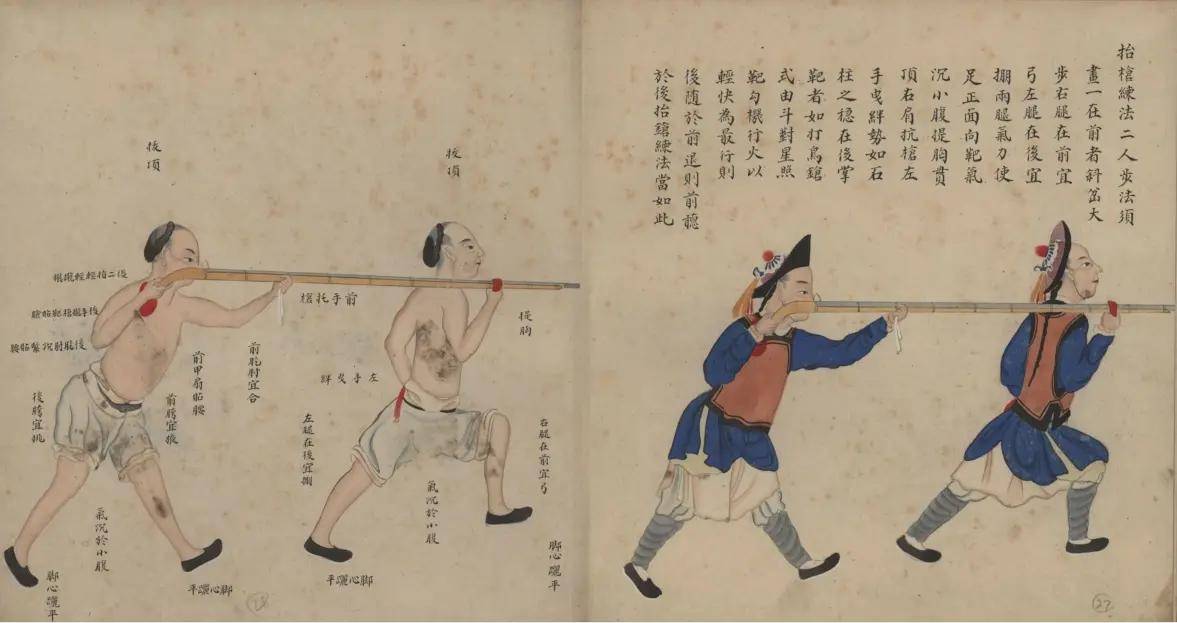 抬槍練法二人步法須
畫一在前者斜岔大
步右腿在前宜
弓左腿在後宜
掤兩腿氣力使
足正面向靶氣
沉小腹提胸貫
頂右肩抗槍左
手曳絆勢如石
柱之穏在後掌
靶者如打鳥鎗
式由斗對星照
靶勾機行火以
輕快為最行則
後隨於前退則前聽
於後抬鎗練法當如此
27
拔項
提胸
左手曳絆
右腿在前宜弓
左腿在後宜掤
氣沉於小腹
脚心躧平
脚心躧平
拔項
後二指輕輕攏
前手托槍
後肱肘沉緊貼
前肱肘宜合
前甲扇貼腰
前膀宜掖
後膀宜挑
氣沉於小腹
脚心躧平
脚心躧平
28